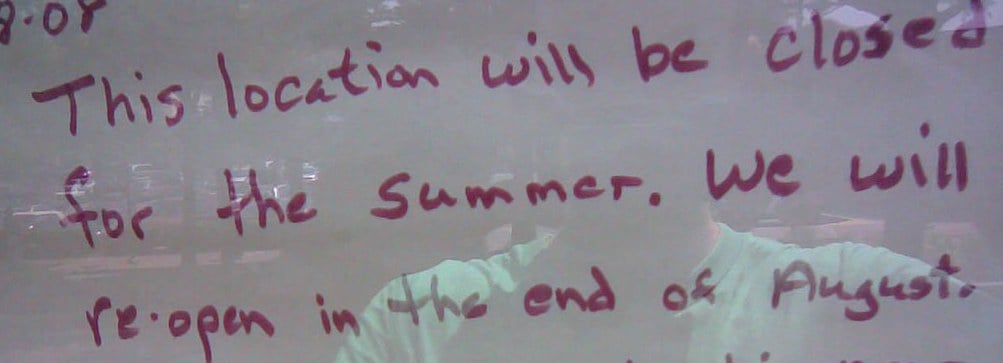 This location will be closed
for the summer. We will
re-open in the end of August.